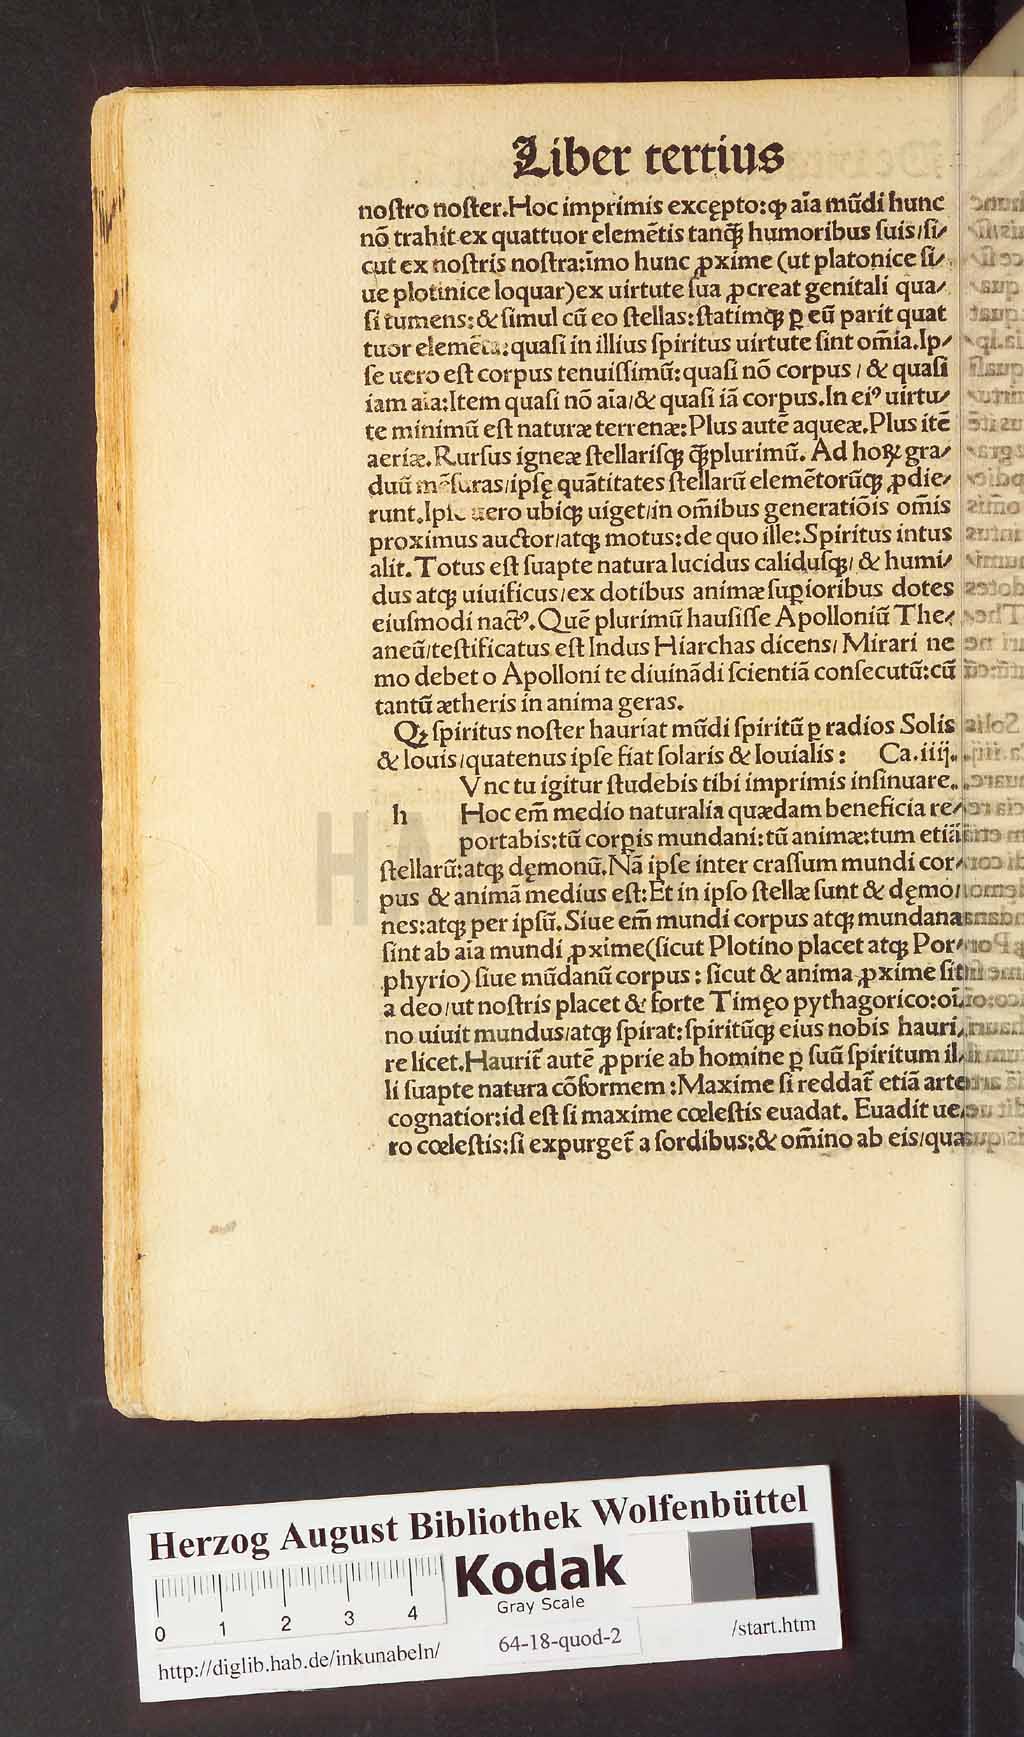 Liber tertius
noſtro noſter.Hoc imprimis excępto:ꝙ aĩa mũdi hunc
nõ trahit ex quattuor elemẽtis tanꝗ̃ humoribus ſuis/ſi⸗
cut ex noſtris noſtra:ĩmo hunc ꝓxime (ut platonice ſi⸗
ue plotinice loquar)ex uirtute ſua ꝓcreat genitali qua⸗
ſi tumens:& ſimul cũ eo ſtellas:ſtatimqꝫ ꝑ eũ parit quat
tuor elemẽta:quaſi in illius ſpiritus uirtute ſint om̃ia.Ip⸗
ſe uero eſt corpus tenuiſſimũ:quaſi nõ corpus / & quaſi
iam aĩa:Item quaſi nõ aĩa/& quaſi iã corpus.In eiꝰ uirtu⸗
te minimũ eſt naturæ terrenæ:Plus autẽ aqueæ.Plus itẽ
aeriæ.Rurſus igneæ ſtellariſqꝫ ꝗ̃plurimũ. Ad hoꝝ gra⸗
duũ mẽſuras/ipſę quãtitates ſtellarũ elemẽtorũqꝫ ꝓdie⸗
runt.Ipſe uero ubiqꝫ uiget/in om̃ibus generatiõis om̃is
proximus auctor/atqꝫ motus:de quo ille:Spiritus intus
alit.Totus eſt ſuapte natura lucidus caliduſqꝫ/ & humi⸗
dus atqꝫ uiuificus/ex dotibus animæ ſuꝑioribus dotes
eiuſmodi nactꝰ.Quẽ plurimũ hauſiſſe Apolloniũ The⸗
aneũ/teſtificatus eſt Indus Hiarchas dicens/ Mirari ne
mo debet o Apolloni te diuinãdi ſcientiã conſecutũ:cũ
tantũ ætheris in anima geras.
Qꝫ ſpiritus noſter hauriat mũdi ſpiritũ ꝑ radios Solis
& Iouis/quatenus ipſe fiat ſolaris & Iouialis: Ca.iiij.
Vnc tu igitur ſtudebis tibi imprimis inſinuare.
h Hoc em̃ medio naturalia quædam beneficia re⸗
portabis:tũ corꝑis mundani:tũ animæ:tum etiã
ſtellarũ:atqꝫ dęmonũ.Nã ipſe inter craſſum mundi cor⸗
pus & animã medius eſt:Et in ipſo ſtellæ ſunt & dęmo
nes:atqꝫ per ipſũ.Siue em̃ mundi corpus atqꝫ mundana
ſint ab aĩa mundi ꝓxime(ſicut Plotino placet atqꝫ Por⸗
phyrio) ſiue mũdanũ corpus : ſicut & anima ꝓxime ſit
a deo/ut noſtris placet & forte Timęo pythagorico:oĩ
no uiuit mundus/atqꝫ ſpirat:ſpiritũqꝫ eius nobis hauri⸗
re licet.Haurit̃ autẽ ꝓprie ab homine ꝑ ſuũ ſpiritum il⸗
li ſuapte natura cõformem :Maxime ſi reddat̃ etiã arte
cognatior:id eſt ſi maxime cœleſtis euadat. Euadit ue⸗
ro cœleſtis:ſi expurget̃ a ſordibus:& om̃ino ab eis/qua
Herzog August Bibliothek Wolfenbüttel
Kodak
Gray Scale
0 1 2 3 4
64-18-quod-2
http://diglib.hab.de/inkunabeln/
/start.htm
HAB